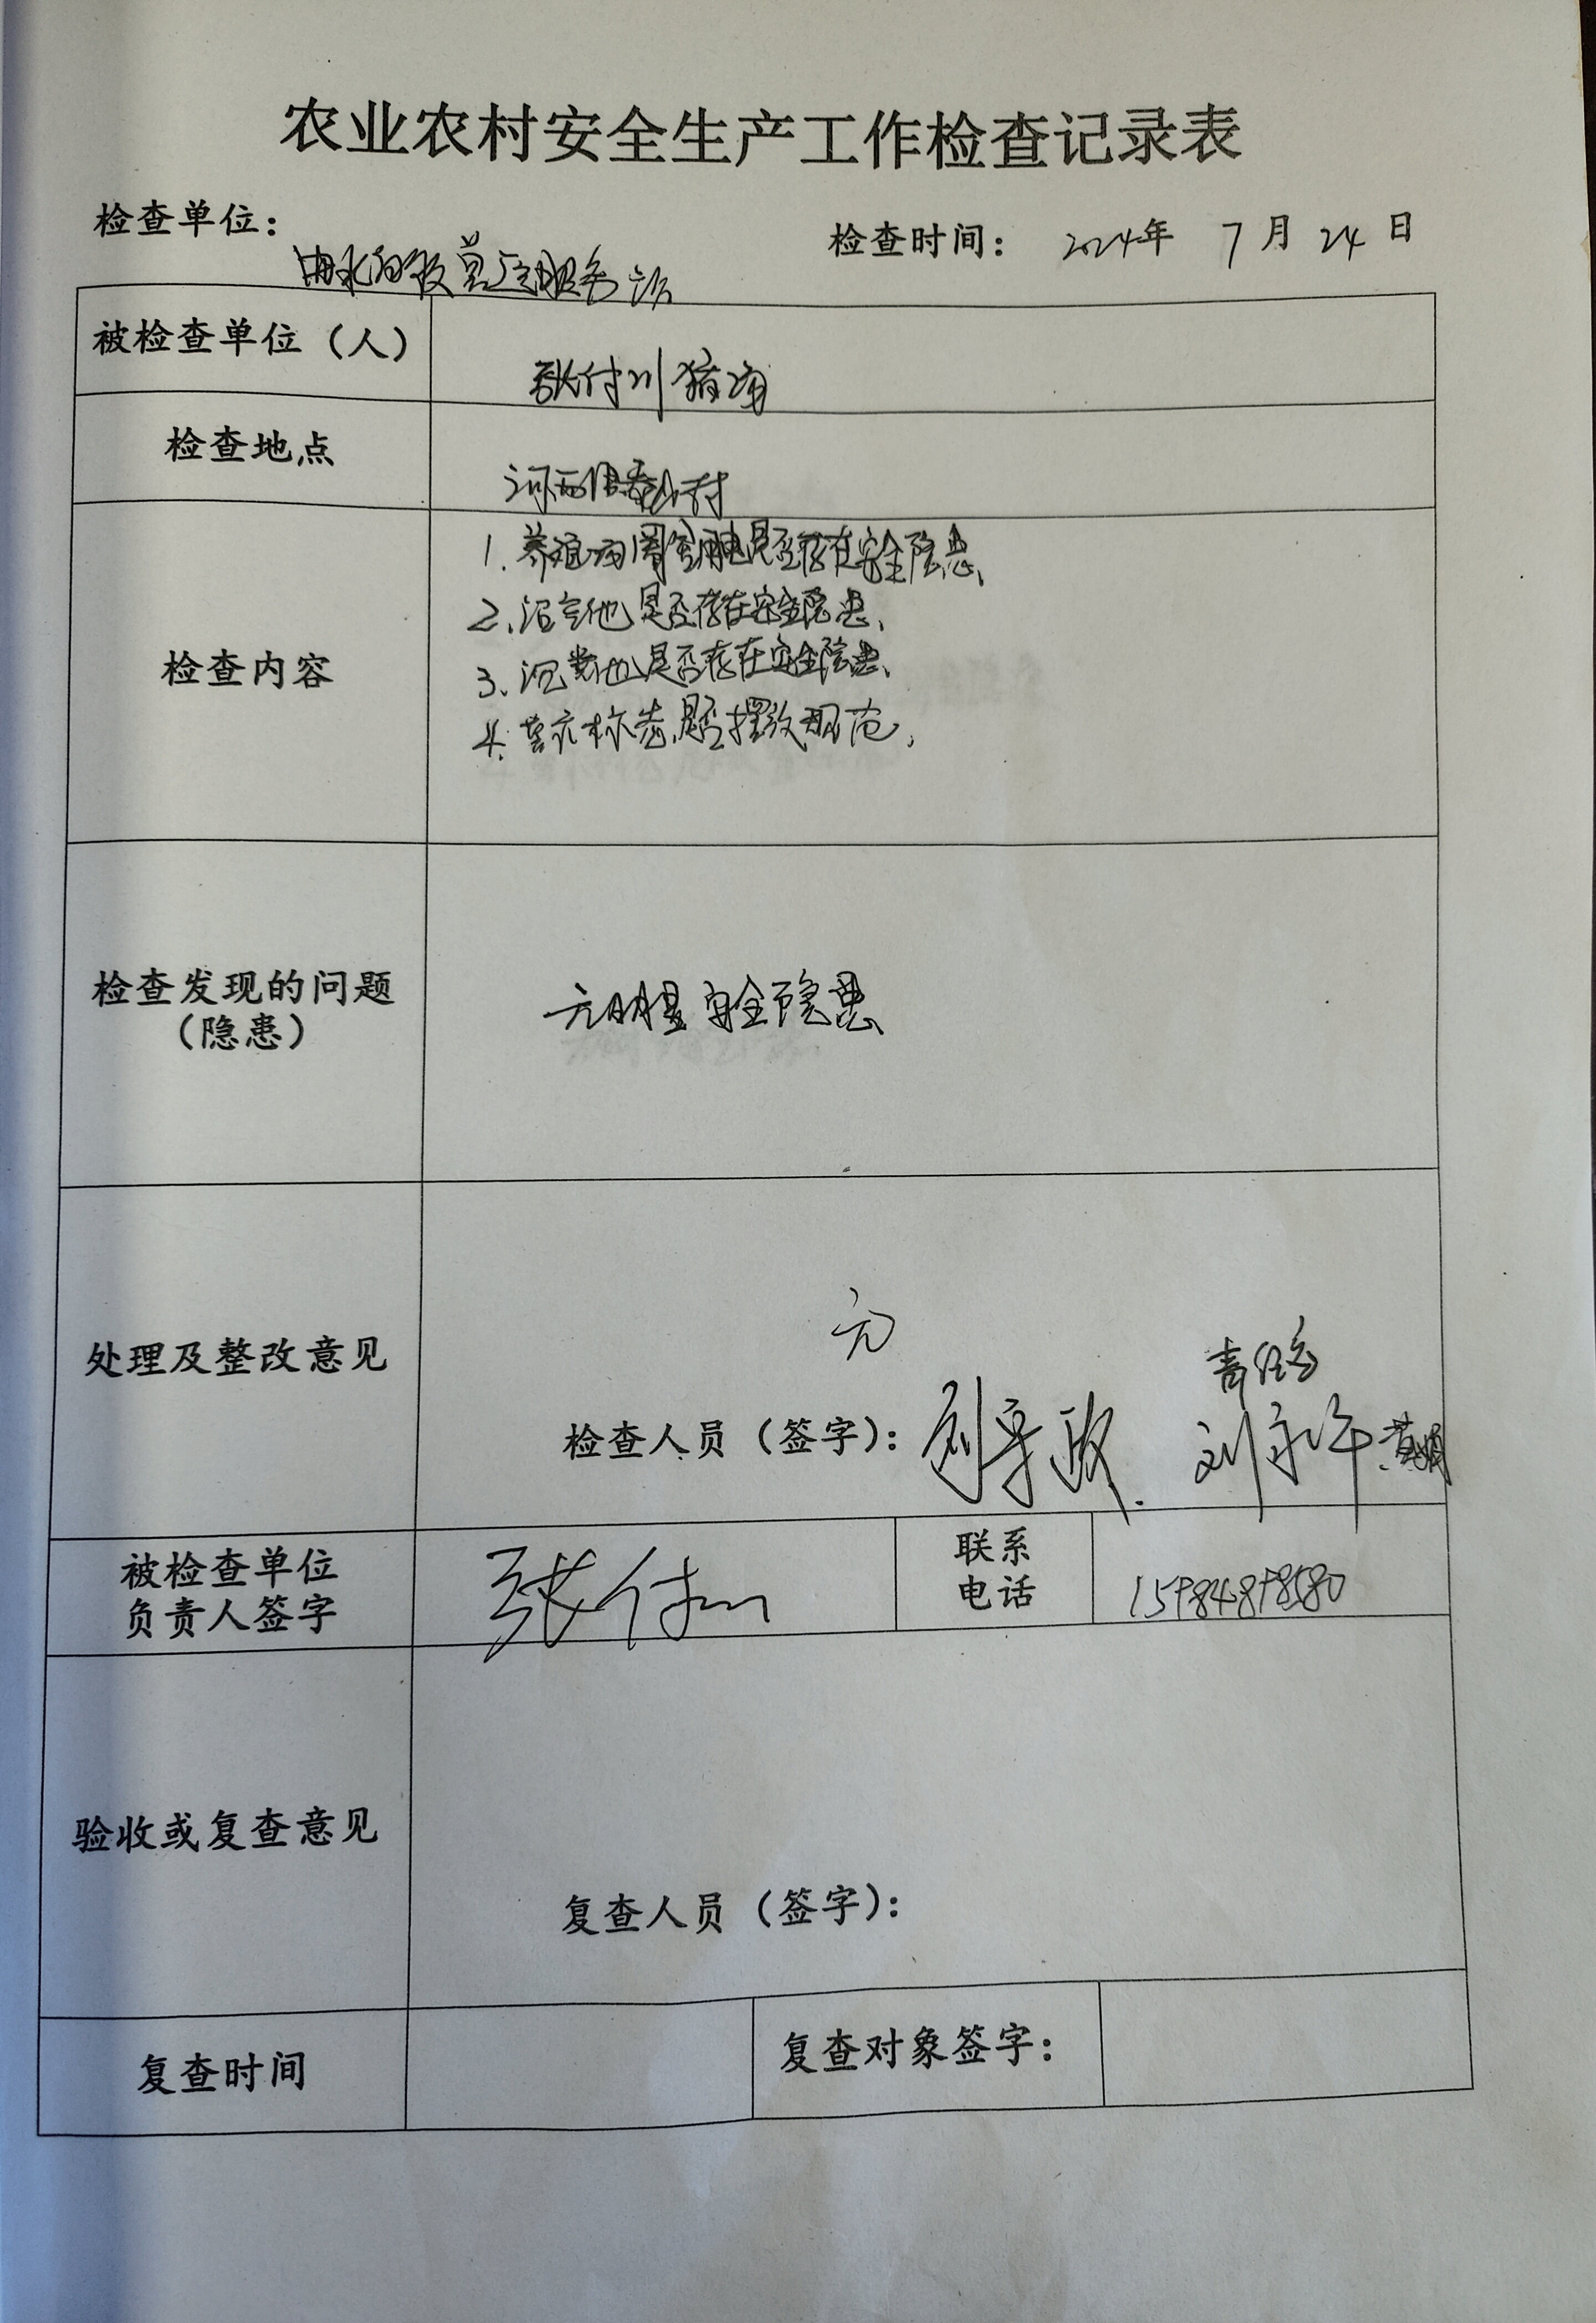 农业农村安全生产工作检查记录表
检查单位：
检查时间： 2024年 7月 24日
服务
被检查单位（人）
张付川猪场
检查地点
河西 村
检查内容
1.养殖场周围用电是否存在安全隐患、
2、沼气池是否存在安全隐患、
3、沉粪池是否存在安全隐患、
4.警示标志是否摆放规范，
检查发现的问题
（隐患）
无明显安全隐患
处理及整改意见
无
检查人员（签字）： 刘永 黄
被检查单位
负责人签字
张付川
联系
电话
验收或复查意见
复查人员（签字）：
复查时间
复查对象签字：